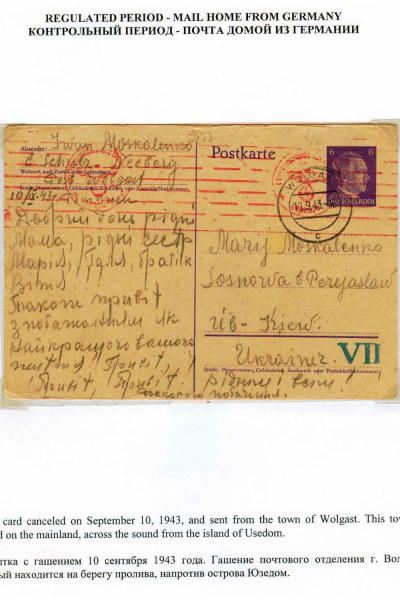 REGULATED PERIOD - MAIL HOME FROM GERMANY
КОНТРОЛЬНЫЙ ПЕРИОД - ПОЧТА ДОМОЙ ИЗ ГЕРМАНИИ
Absender: Iwan Moskalenko
b Schulz Seeberg
Wohnort, auch Zustell- oder Leitpostamt
Post Wolgast
Straße, Hausnummer, Gebäudeteil, Stockwerk oder Postschließfachnummer
10/IX-43р.
Добрий день рідні
Мама, рідні сестр
Марія, Галя, братік
Вітя!
Також привіт
з побажанням як
найкращого вашого
життя! Привіт,!
! Привіт, Привіт!
до скорого побачення.
Postkarte
6 6
DEUTSCHES REICH
WOLGAST
10.9.43
c
Mary Moskalenko
Sosnowa b Perejaslaw
Üb- Kjew.
Ukraine
VII
Straße, Hausnummer, Gebäudeteil, Stockwerk oder Postschließfachnummer
рідним і всім!
card canceled on September 10, 1943, and sent from the town of Wolgast. This tow
d on the mainland, across the sound from the island of Usedom.
тка с гашением 10 сентября 1943 года. Гашение почтового отделения г. Вол
ый находится на берегу пролива, напротив острова Юзедом.